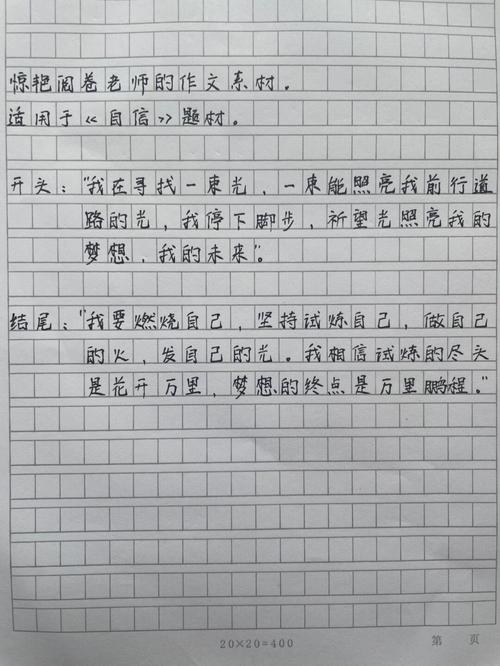 惊艳阅卷老师的作文素材.
适用于《自信》题材。
开头:"我在寻找一束光,一束能照亮我前行道
路的光,我停下脚步,祈望光照亮我的
梦想,我的未来"。
结尾:"我要燃烧自己,坚持试炼自己,做自己
的火,发自己的光。我相信试炼的尽头
是花开万里,梦想的终点是万里鹏程。"
20×20=400
第 页